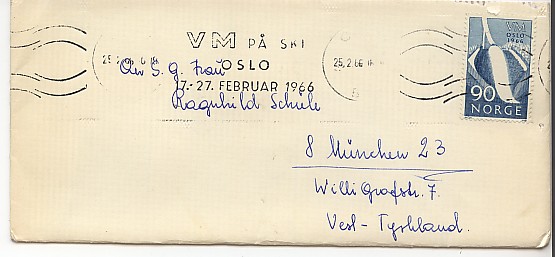 VM PÅ SKI
OSLO
17.-27. FEBRUAR 1966
25.2.66
25.2.66
VM
OSLO
1966
90
NORGE
An S. g. Frau
Ragnhild Schiele
8 München 23
Willi Grafstr. 7.
Vest-Tyskland.